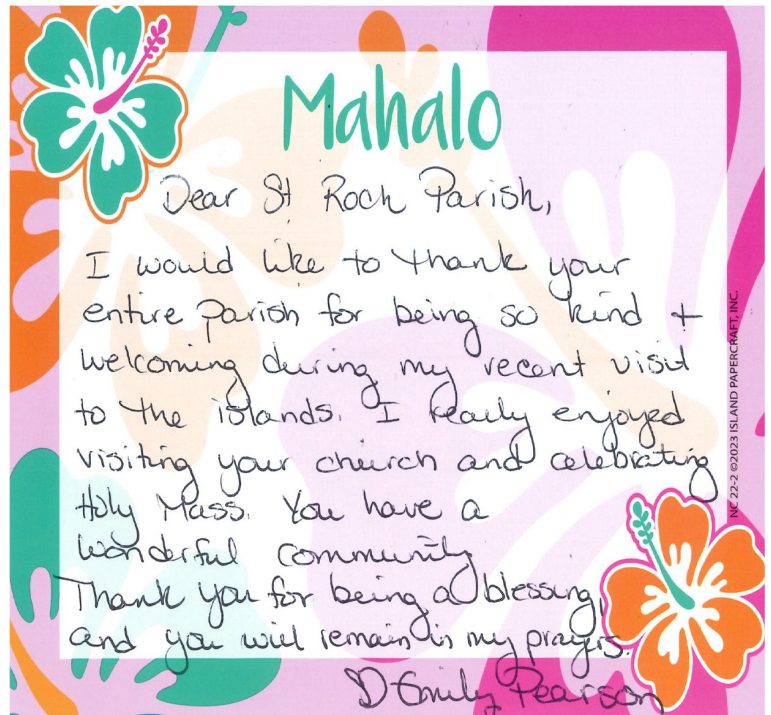 Mahalo
Dear St Roch Parish,
I would like to thank your
entire Parish for being so kind +
welcoming during my recent visit
to the islands. I really enjoyed
visiting your church and celebrating
Holy Mass. You have a
wonderful community
Thank you for being a blessing,
and you will remain in my prayers.
Emily Pearson
NC 22-2 ©2023 ISLAND PAPERCRAFT, INC.